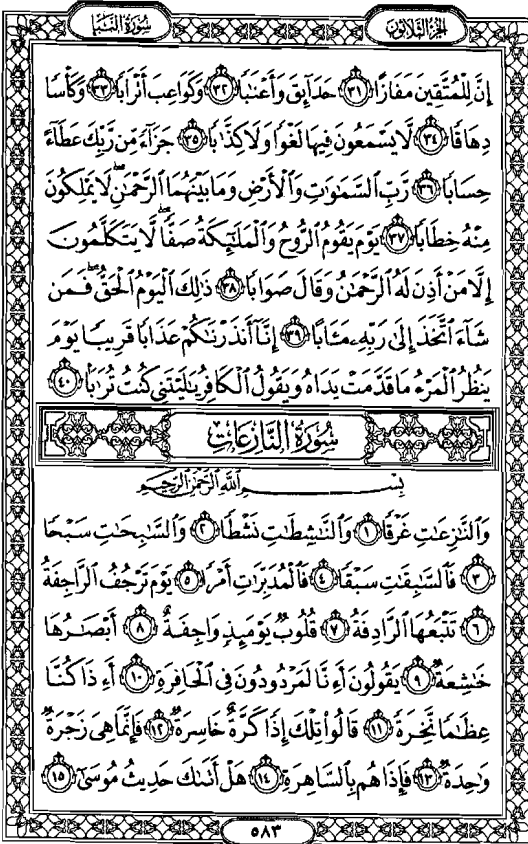 سُورَةُ النَّبَإِ
الجُزءُ الثَّلَاثُونَ
إِنَّ لِلْمُتَّقِينَ مَفَازًا ٣١ حَدَآئِقَ وَأَعْنَٰبًا ٣٢ وَكَوَاعِبَ أَتْرَابًا ٣٣ وَكَأْسًا
دِهَاقًا ٣٤ لَّا يَسْمَعُونَ فِيهَا لَغْوًا وَلَا كِذَّٰبًا ٣٥ جَزَآءً مِّن رَّبِّكَ عَطَآءً
حِسَابًا ٣٦ رَّبِّ السَّمَٰوَٰتِ وَالْأَرْضِ وَمَا بَيْنَهُمَا الرَّحْمَٰنِ ۖ لَا يَمْلِكُونَ
مِنْهُ خِطَابًا ٣٧ يَوْمَ يَقُومُ الرُّوحُ وَالْمَلَٰٓئِكَةُ صَفًّا ۖ لَّا يَتَكَلَّمُونَ
إِلَّا مَنْ أَذِنَ لَهُ الرَّحْمَٰنُ وَقَالَ صَوَابًا ٣٨ ذَٰلِكَ الْيَوْمُ الْحَقُّ ۖ فَمَن
شَآءَ اتَّخَذَ إِلَىٰ رَبِّهِۦ مَـَٔابًا ٣٩ إِنَّآ أَنذَرْنَٰكُمْ عَذَابًا قَرِيبًا يَوْمَ
يَنظُرُ الْمَرْءُ مَا قَدَّمَتْ يَدَاهُ وَيَقُولُ الْكَافِرُ يَٰلَيْتَنِي كُنتُ تُرَٰبًا ٤٠
سُورَةُ النَّازِعَاتِ
بِسْمِ اللَّهِ الرَّحْمَٰنِ الرَّحِيمِ
وَالنَّٰزِعَٰتِ غَرْقًا ١ وَالنَّٰشِطَٰتِ نَشْطًا ٢ وَالسَّٰبِحَٰتِ سَبْحًا
٣ فَالسَّٰبِقَٰتِ سَبْقًا ٤ فَالْمُدَبِّرَٰتِ أَمْرًا ٥ يَوْمَ تَرْجُفُ الرَّاجِفَةُ
٦ تَتْبَعُهَا الرَّادِفَةُ ٧ قُلُوبٌ يَوْمَئِذٍ وَاجِفَةٌ ٨ أَبْصَٰرُهَا
خَٰشِعَةٌ ٩ يَقُولُونَ أَءِنَّا لَمَرْدُودُونَ فِي الْحَافِرَةِ ١٠ أَءِذَا كُنَّا
عِظَٰمًا نَّخِرَةً ١١ قَالُوا تِلْكَ إِذًا كَرَّةٌ خَاسِرَةٌ ١٢ فَإِنَّمَا هِيَ زَجْرَةٌ
وَٰحِدَةٌ ١٣ فَإِذَا هُم بِالسَّاهِرَةِ ١٤ هَلْ أَتَىٰكَ حَدِيثُ مُوسَىٰٓ ١٥
٥٨٣